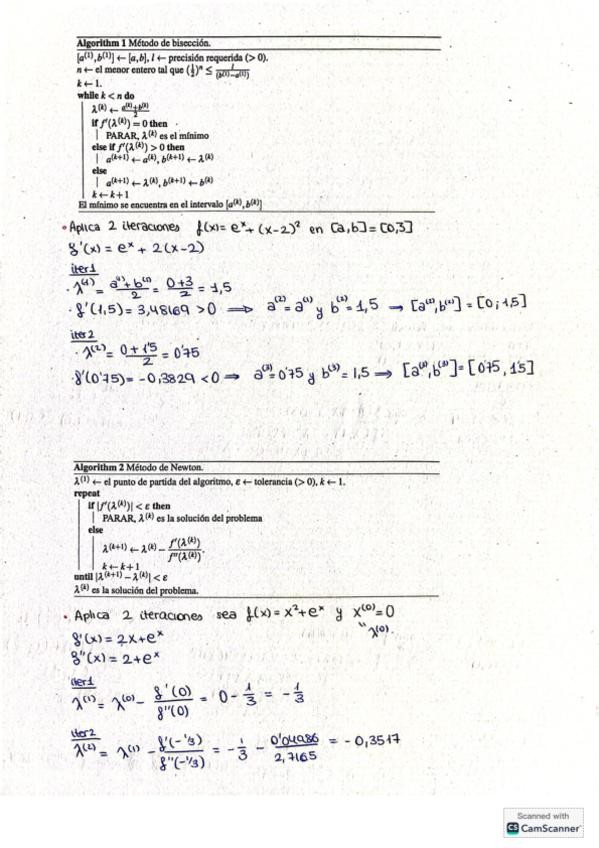 Algorithm 1 Método de bisección.
[a⁽¹⁾, b⁽¹⁾] ← [a, b], l ← precisión requerida (> 0).
n ← el menor entero tal que (1/2)ⁿ ≤ l/(b⁽¹⁾−a⁽¹⁾)
k ← 1.
while k < n do
λ⁽ᵏ⁾ ← (a⁽ᵏ⁾+b⁽ᵏ⁾)/2
if f'(λ⁽ᵏ⁾) = 0 then
PARAR, λ⁽ᵏ⁾ es el mínimo
else if f'(λ⁽ᵏ⁾) > 0 then
a⁽ᵏ⁺¹⁾ ← a⁽ᵏ⁾, b⁽ᵏ⁺¹⁾ ← λ⁽ᵏ⁾
else
a⁽ᵏ⁺¹⁾ ← λ⁽ᵏ⁾, b⁽ᵏ⁺¹⁾ ← b⁽ᵏ⁾
k ← k + 1
El mínimo se encuentra en el intervalo [a⁽ᵏ⁾, b⁽ᵏ⁾]
• Aplica 2 iteraciones f(x) = eˣ + (x-2)² en [a,b] = [0,3]
f'(x) = eˣ + 2(x-2)
iter1
· λ⁽¹⁾ = (a⁽¹⁾+b⁽¹⁾)/2 = (0+3)/2 = 1,5
· f'(1,5) = 3,48169 > 0 ⟹ a⁽²⁾ = a⁽¹⁾ y b⁽²⁾ = 1,5 → [a⁽²⁾, b⁽²⁾] = [0; 1,5]
iter2
· λ⁽²⁾ = (0+1'5)/2 = 0'75
· f'(0'75) = -0,3829 < 0 ⟹ a⁽³⁾ = 0'75 y b⁽³⁾ = 1,5 ⟹ [a⁽³⁾, b⁽³⁾] = [0'75, 1'5]
Algorithm 2 Método de Newton.
λ⁽¹⁾ ← el punto de partida del algoritmo, ε ← tolerancia (> 0), k ← 1.
repeat
if |f'(λ⁽ᵏ⁾)| < ε then
PARAR, λ⁽ᵏ⁾ es la solución del problema
else
λ⁽ᵏ⁺¹⁾ ← λ⁽ᵏ⁾ − f'(λ⁽ᵏ⁾)/f''(λ⁽ᵏ⁾).
k ← k + 1
until |λ⁽ᵏ⁺¹⁾ − λ⁽ᵏ⁾| < ε
λ⁽ᵏ⁾ es la solución del problema.
• Aplica 2 iteraciones sea f(x) = x² + eˣ y x⁽⁰⁾ = 0
" λ⁽⁰⁾.
f'(x) = 2x + eˣ
f''(x) = 2 + eˣ
iter1
λ⁽¹⁾ = λ⁽⁰⁾ - f'(0)/f''(0) = 0 - 1/3 = -1/3
iter2
λ⁽²⁾ = λ⁽¹⁾ - f'(-1/3)/f''(-1/3) = -1/3 - 0'04986/2,7165 = -0,3517
Scanned with
CS CamScanner